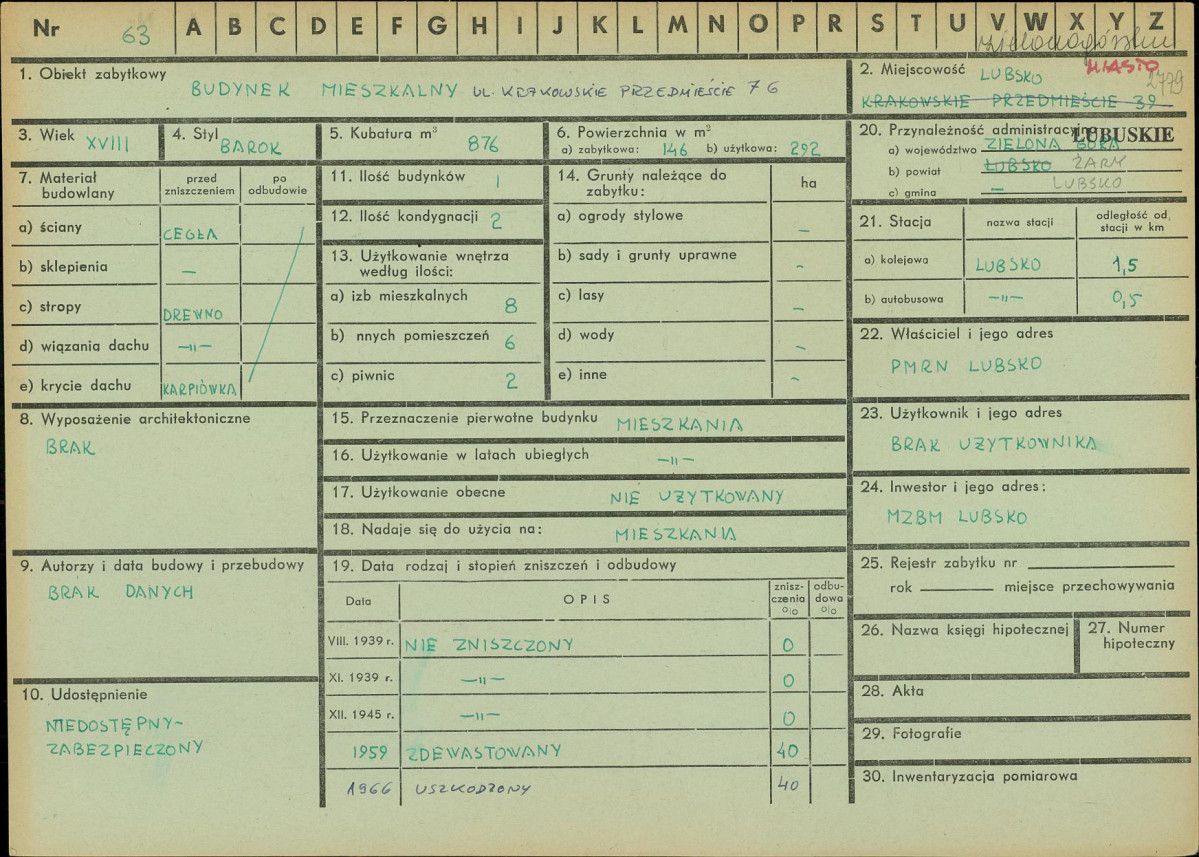 Nr 63 A B C D E F G H I J K L M N O P R S T U V W X Y Z
zielonogórskie
1. Obiekt zabytkowy
BUDYNEK MIESZKALNY UL. KRAKOWSKIE PRZEDMIEŚCIE 76
2. Miejscowość LUBSKO MIASTO
2779
KRAKOWSKIE PRZEDMIEŚCIE 39
3. Wiek XVIII
4. Styl BAROK
5. Kubatura m³ 876
6. Powierzchnia w m²
a) zabytkowa: 146 b) użytkowa: 292
20. Przynależność administracyjna
LUBUSKIE
a) województwo ZIELONA GÓRA
b) powiat LUBSKO ŻARY
c) gmina – LUBSKO
7. Materiał budowlany
przed zniszczeniem
po odbudowie
a) ściany CEGŁA
b) sklepienia –
c) stropy DREWNO
d) wiązania dachu –"–
e) krycie dachu KARPIÓWKA
11. Ilość budynków 1
12. Ilość kondygnacji 2
13. Użytkowanie wnętrza
według ilości:
a) izb mieszkalnych 8
b) nnych pomieszczeń 6
c) piwnic 2
14. Grunty należące do
zabytku:
ha
a) ogrody stylowe –
b) sady i grunty uprawne –
c) lasy –
d) wody –
e) inne –
21. Stacja
nazwa stacji
odległość od
stacji w km
a) kolejowa LUBSKO 1,5
b) autobusowa –"– 0,5
22. Właściciel i jego adres
PMRN LUBSKO
8. Wyposażenie architektoniczne
BRAK
15. Przeznaczenie pierwotne budynku MIESZKANIA
16. Użytkowanie w latach ubiegłych –"–
17. Użytkowanie obecne NIE UŻYTKOWANY
18. Nadaje się do użycia na: MIESZKANIA
23. Użytkownik i jego adres
BRAK UŻYTKOWNIKA
24. Inwestor i jego adres:
MZBM LUBSKO
9. Autorzy i data budowy i przebudowy
BRAK DANYCH
19. Data rodzaj i stopień zniszczeń i odbudowy
Data
OPIS
znisz-
czenia
o|o
odbu-
dowa
o|o
VIII. 1939 r. NIE ZNISZCZONY 0
XI. 1939 r. –"– 0
XII. 1945 r. –"– 0
1959 ZDEWASTOWANY 40
1966 USZKODZONY 40
25. Rejestr zabytku nr
rok miejsce przechowywania
26. Nazwa księgi hipotecznej
27. Numer
hipoteczny
10. Udostępnienie
NIEDOSTĘPNY-
ZABEZPIECZONY
28. Akta
29. Fotografie
30. Inwentaryzacja pomiarowa